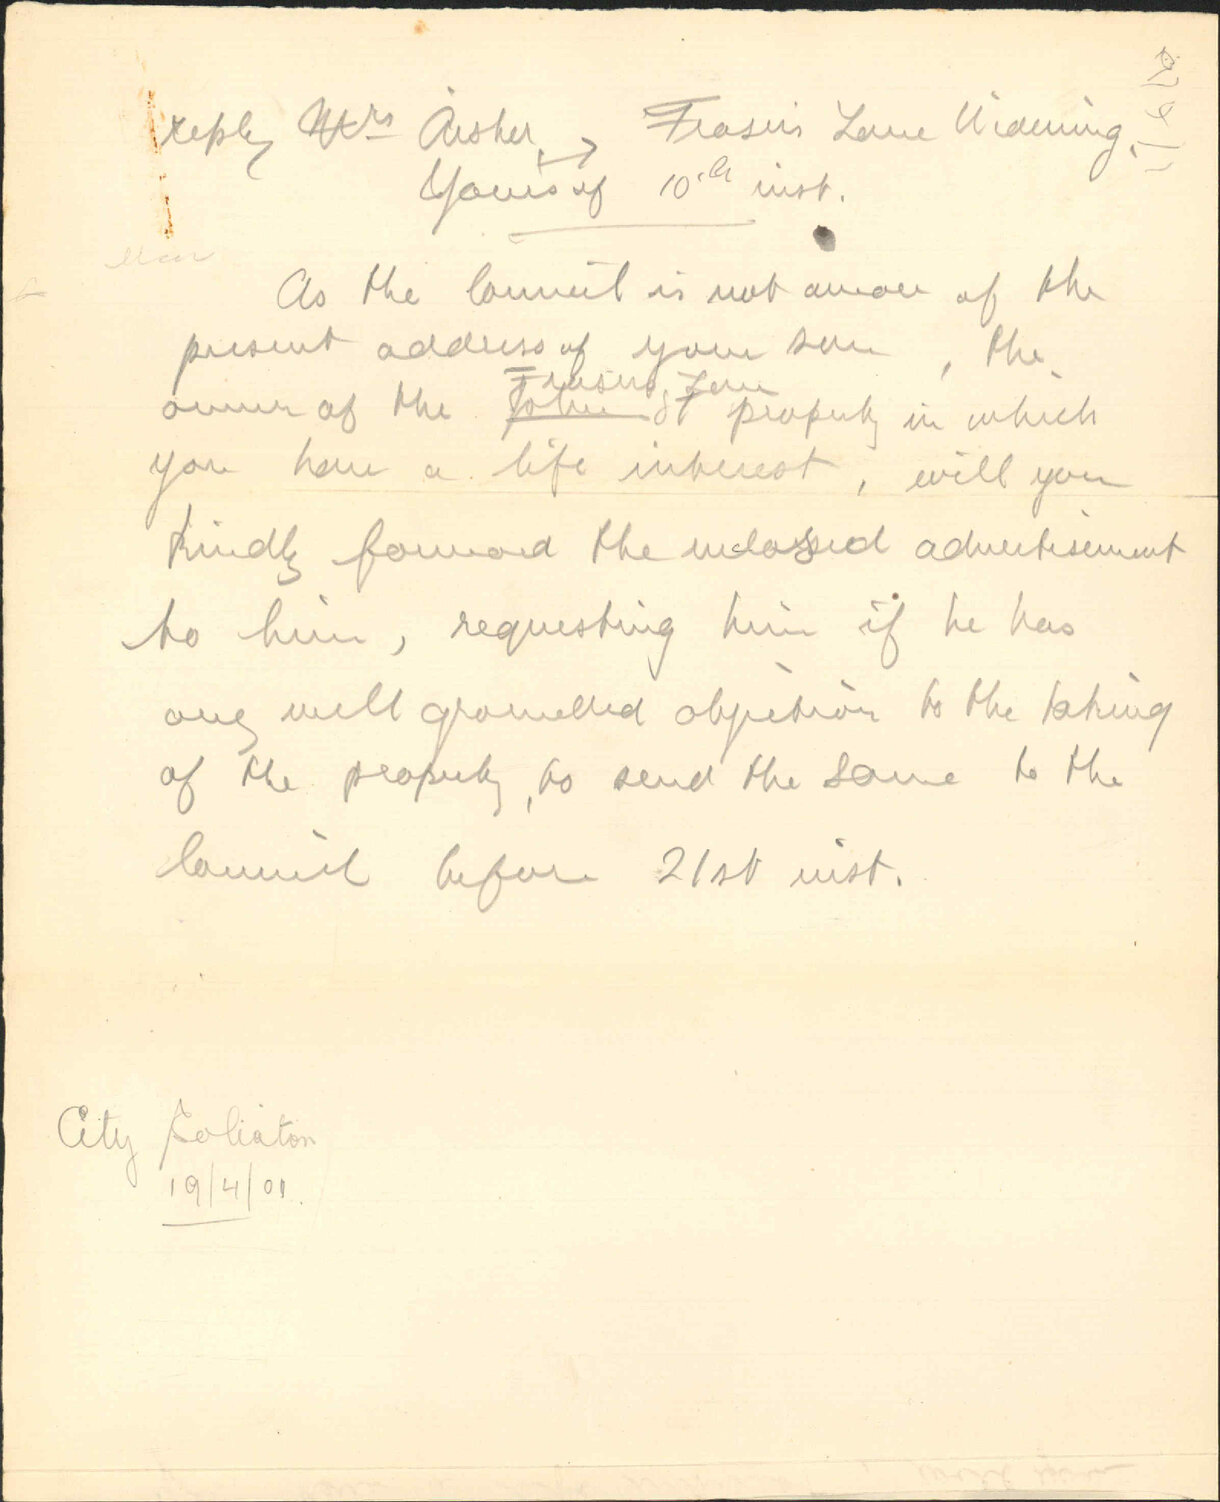 reply Mrs Archer, Frasers Lane Widening,
Yours of 10th inst.
As the Council is not aware of the
present address of your son, the
Frasers Lane
owner of the John St property in which
you have a life interest, will you
kindly forward the inclosed advertisement
to him, requesting him if he has
any well grounded objection to the taking
of the property, to send the same to the
Council before 21st inst.
City Solicitor
19/4/01